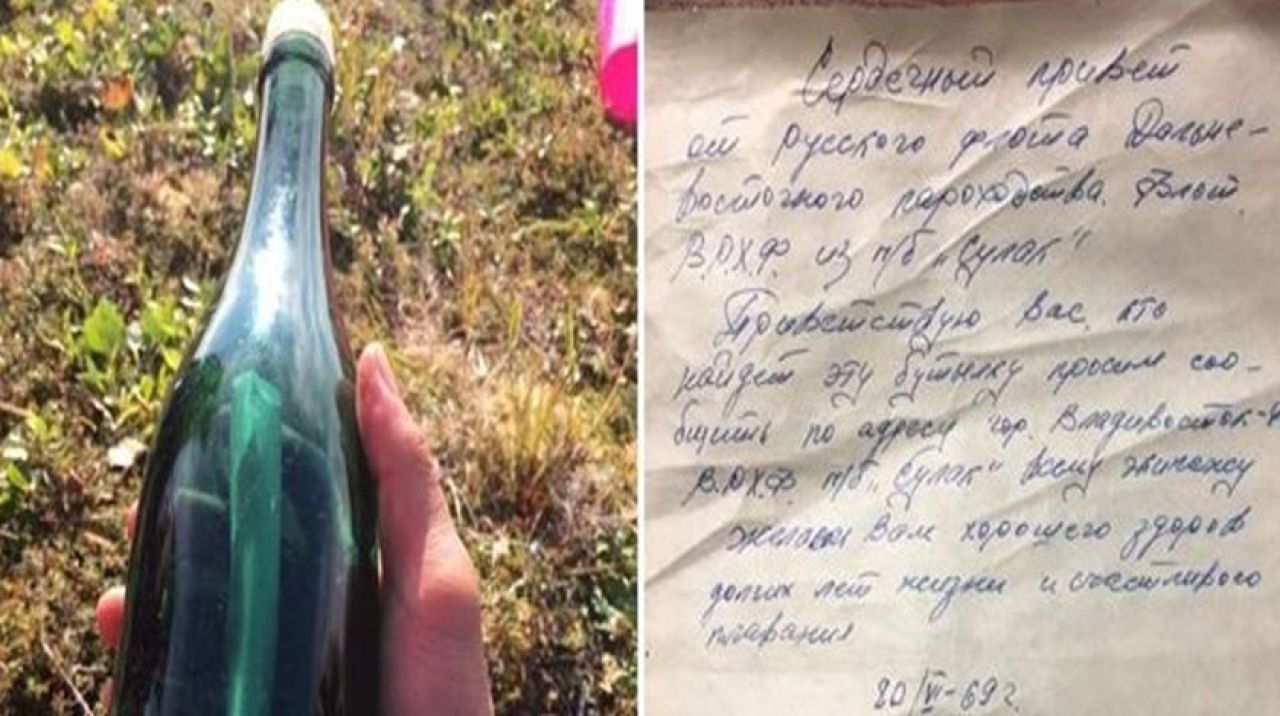 Сердечный привет
от русского флота Дальне-
восточного пароходства. Флот
В.Р.Х.Ф. из п/б „Сулак"
Приветствую Вас, кто
найдет эту бутылку просим соо-
бщить по адресу гор. Владивосток-
В.Р.Х.Ф. п/б „Сулак" всему экипажу
желаем Вам хорошего здоров
долгих лет жизни и счастливого
плавания
20/VI-69 г.